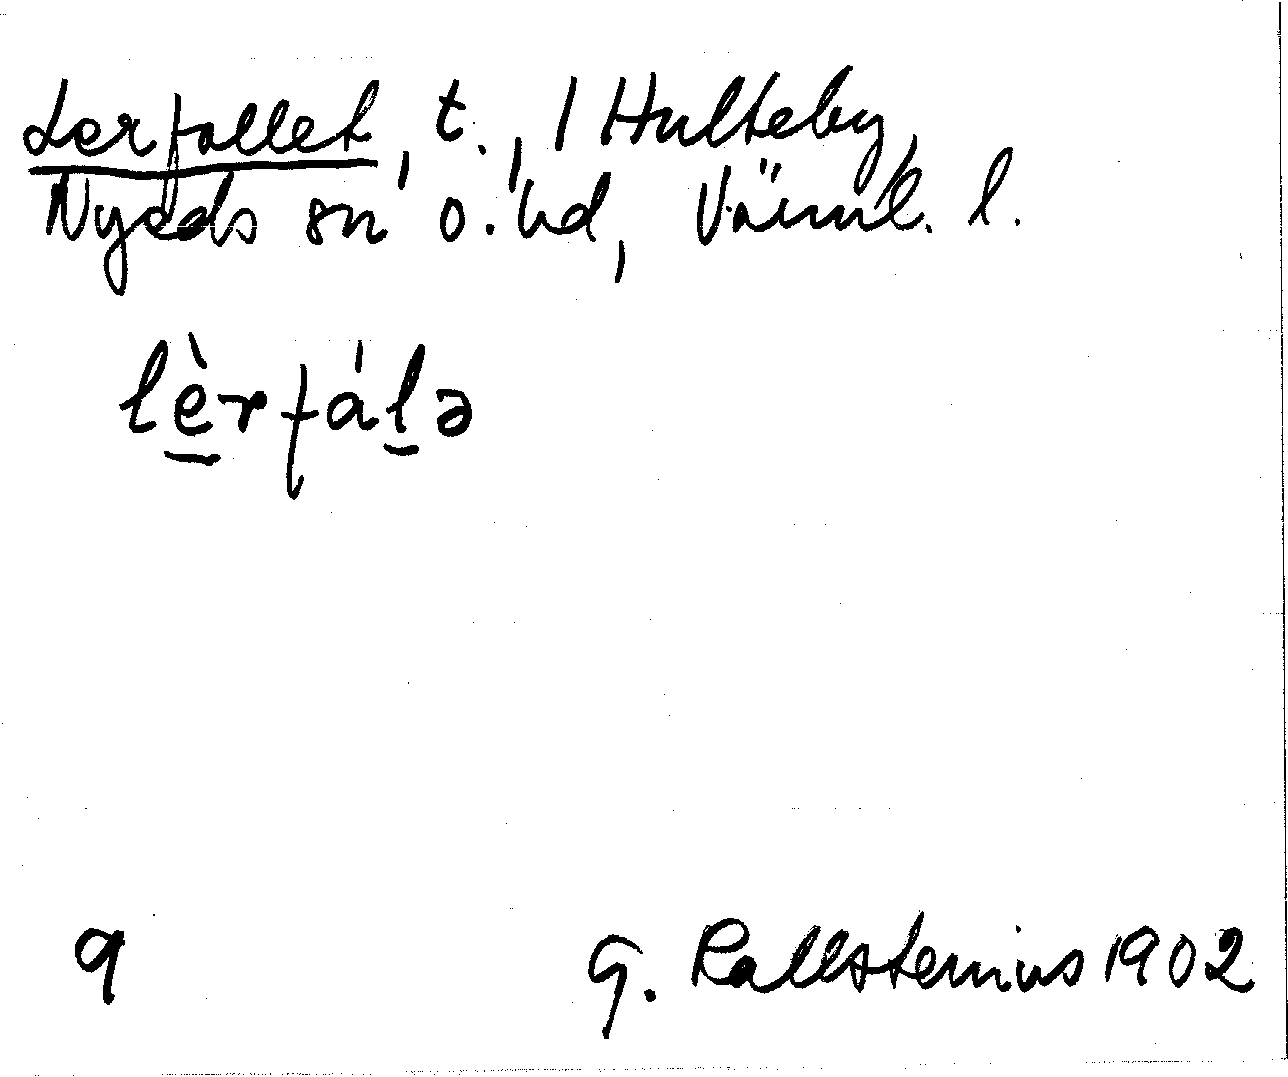 Lerfallet, t., / Hulteby,
Nyeds sn o. hd, Värml. l.
lèrfálə
9
G. Kallstenius 1902